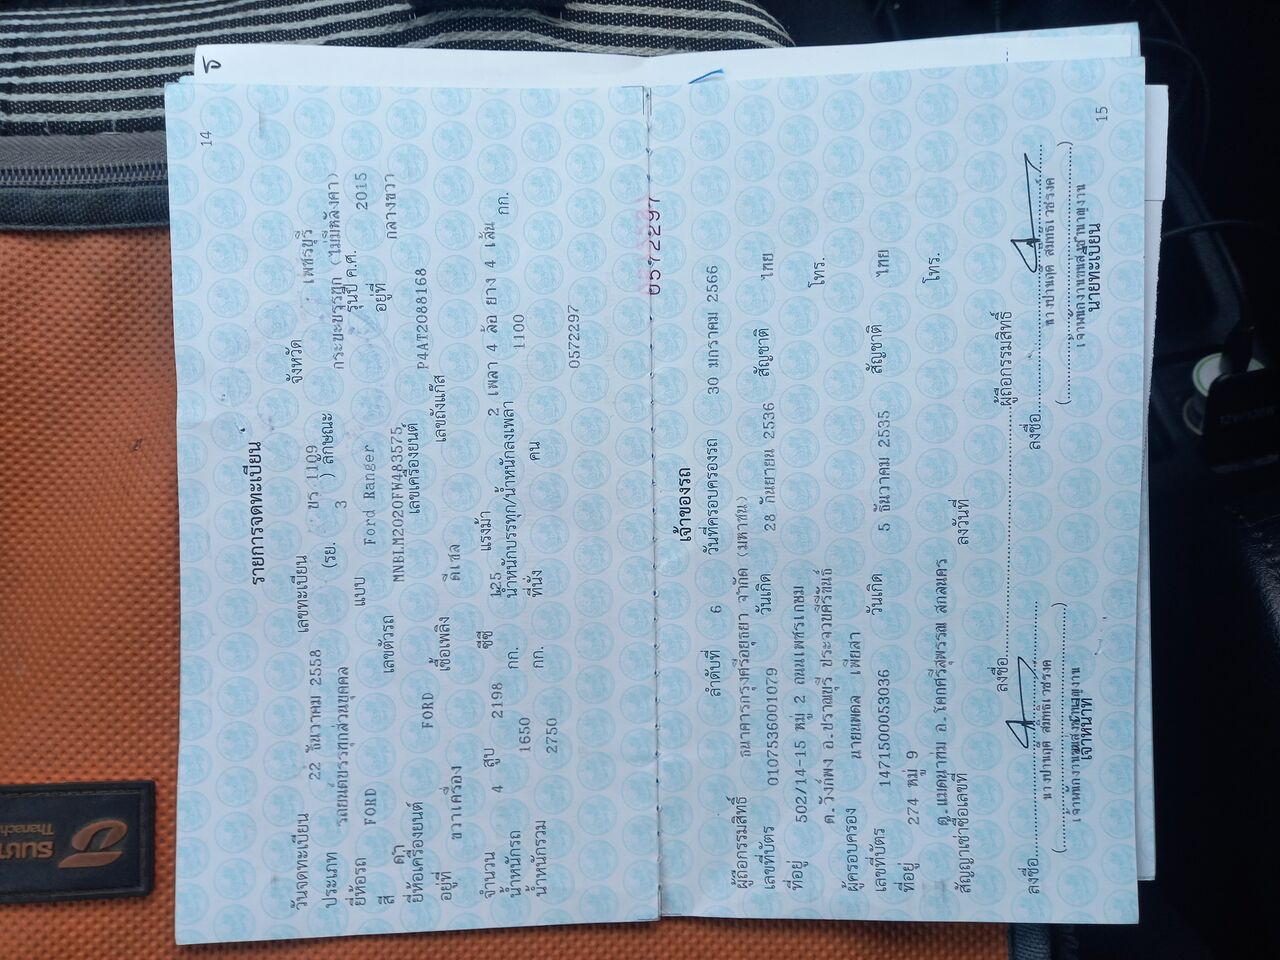 14
รายการจดทะเบียน
วันจดทะเบียน 22 ธันวาคม 2558 เลขทะเบียน ขร 1109 จังหวัด เพชรบุรี
ประเภท รถยนต์บรรทุกส่วนบุคคล (รย. 3 ) ลักษณะ กระบะบรรทุก (ไม่มีหลังคา)
ยี่ห้อรถ FORD แบบ Ford Ranger รุ่นปี ค.ศ. 2015
สี ดำ เลขตัวรถ MNBLM2020FW483575 อยู่ที่ กลางขวา
ยี่ห้อเครื่องยนต์ FORD เลขเครื่องยนต์ P4AT2088168
อยู่ที่ ขวาเครื่อง เชื้อเพลิง ดีเซล เลขถังแก๊ส
จำนวน 4 สูบ 2198 ซีซี 125 แรงม้า 2 เพลา 4 ล้อ ยาง 4 เส้น
น้ำหนักรถ 1650 กก. น้ำหนักบรรทุก/น้ำหนักลงเพลา 1100 กก.
น้ำหนักรวม 2750 กก. ที่นั่ง คน
0572297
0572297
เจ้าของรถ
ลำดับที่ 6 วันที่ครอบครองรถ 30 มกราคม 2566
ผู้ถือกรรมสิทธิ์ ธนาคารกรุงศรีอยุธยา จำกัด (มหาชน)
เลขที่บัตร 0107536001079 วันเกิด 28 กันยายน 2536 สัญชาติ ไทย
ที่อยู่ 502/14-15 หมู่ 2 ถนนเพชรเกษม
ต.วังก์พง อ.ปราณบุรี ประจวบคีรีขันธ์ โทร.
ผู้ครอบครอง นายนพดล เพียสา
เลขที่บัตร 1471500053036 วันเกิด 5 ธันวาคม 2535 สัญชาติ ไทย
ที่อยู่ 274 หมู่ 9
ต.แมดนาท่ม อ.โคกศรีสุพรรณ สกลนคร โทร.
สัญญาเช่าซื้อเลขที่ ลงวันที่
ลงชื่อ ผู้ถือกรรมสิทธิ์
ลงชื่อ ลงชื่อ
เจ้าหน้าที่ นายทะเบียน
15
ธนชา
Thanach